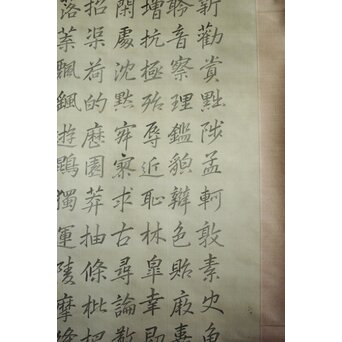 新勸賞黜陟孟軻敦素史魚
聆音察理鑑䫉辯色貽厥嘉
增抗極殆辱近耻林皐幸即
閑處沈默寂寥求古尋論散
招渠荷的歷園莽抽條枇杷
落葉飄颻遊鵾獨運陵摩絳